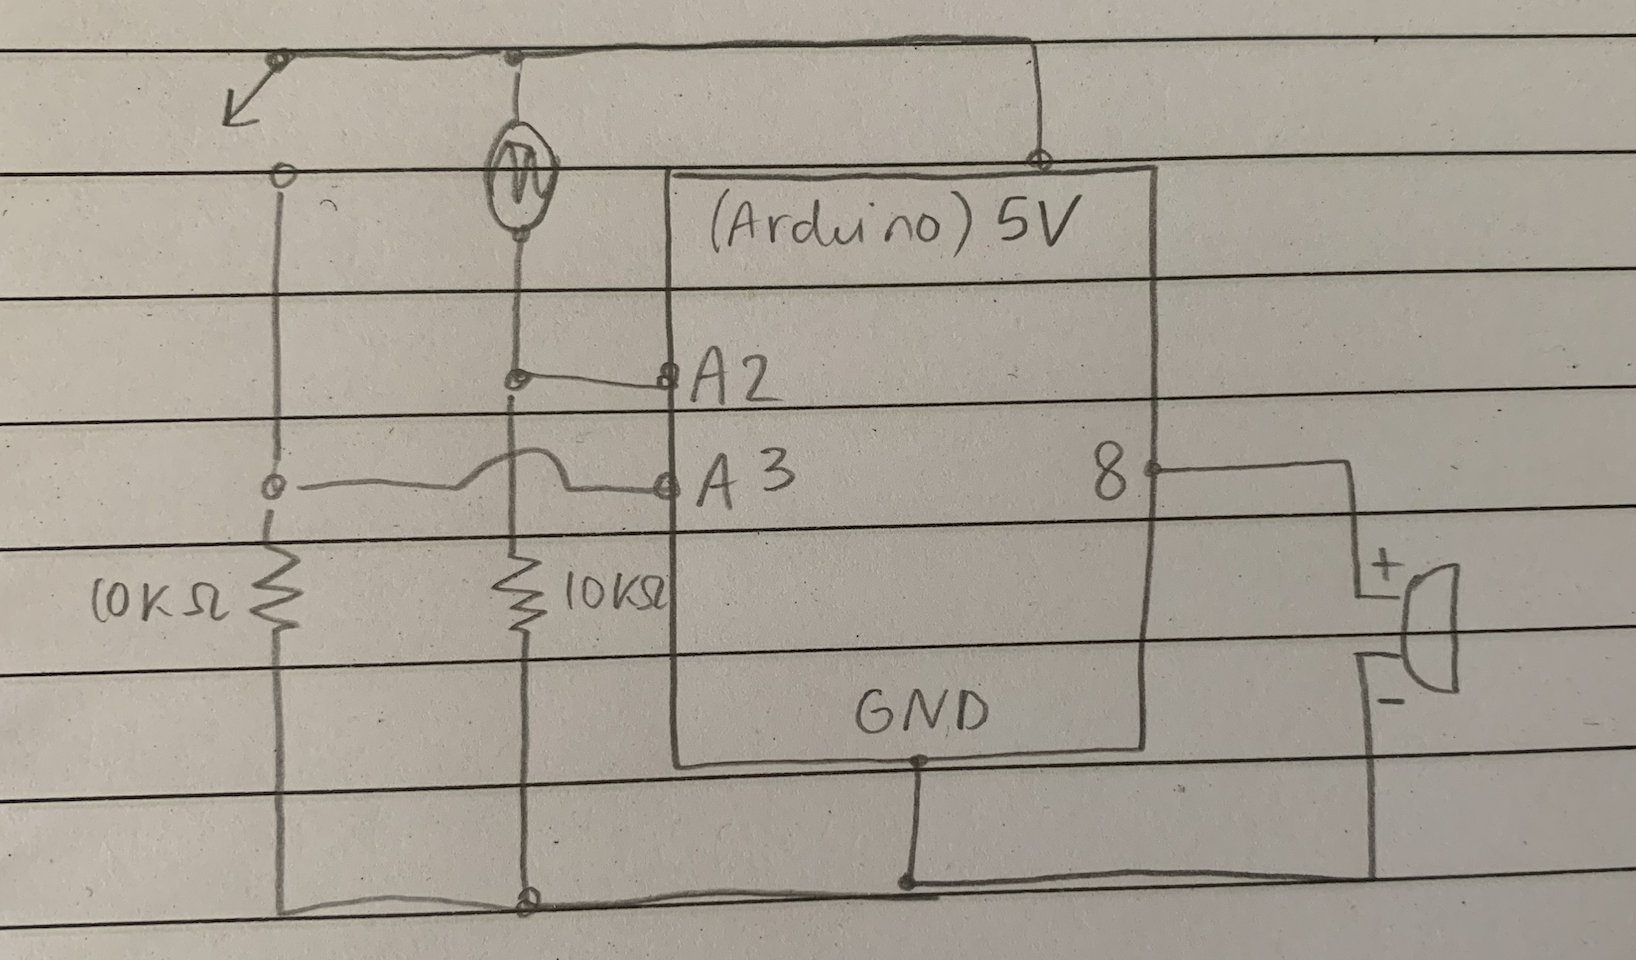 (Arduino) 5V
A2
A3
8
+
10KΩ
10KΩ
GND
-